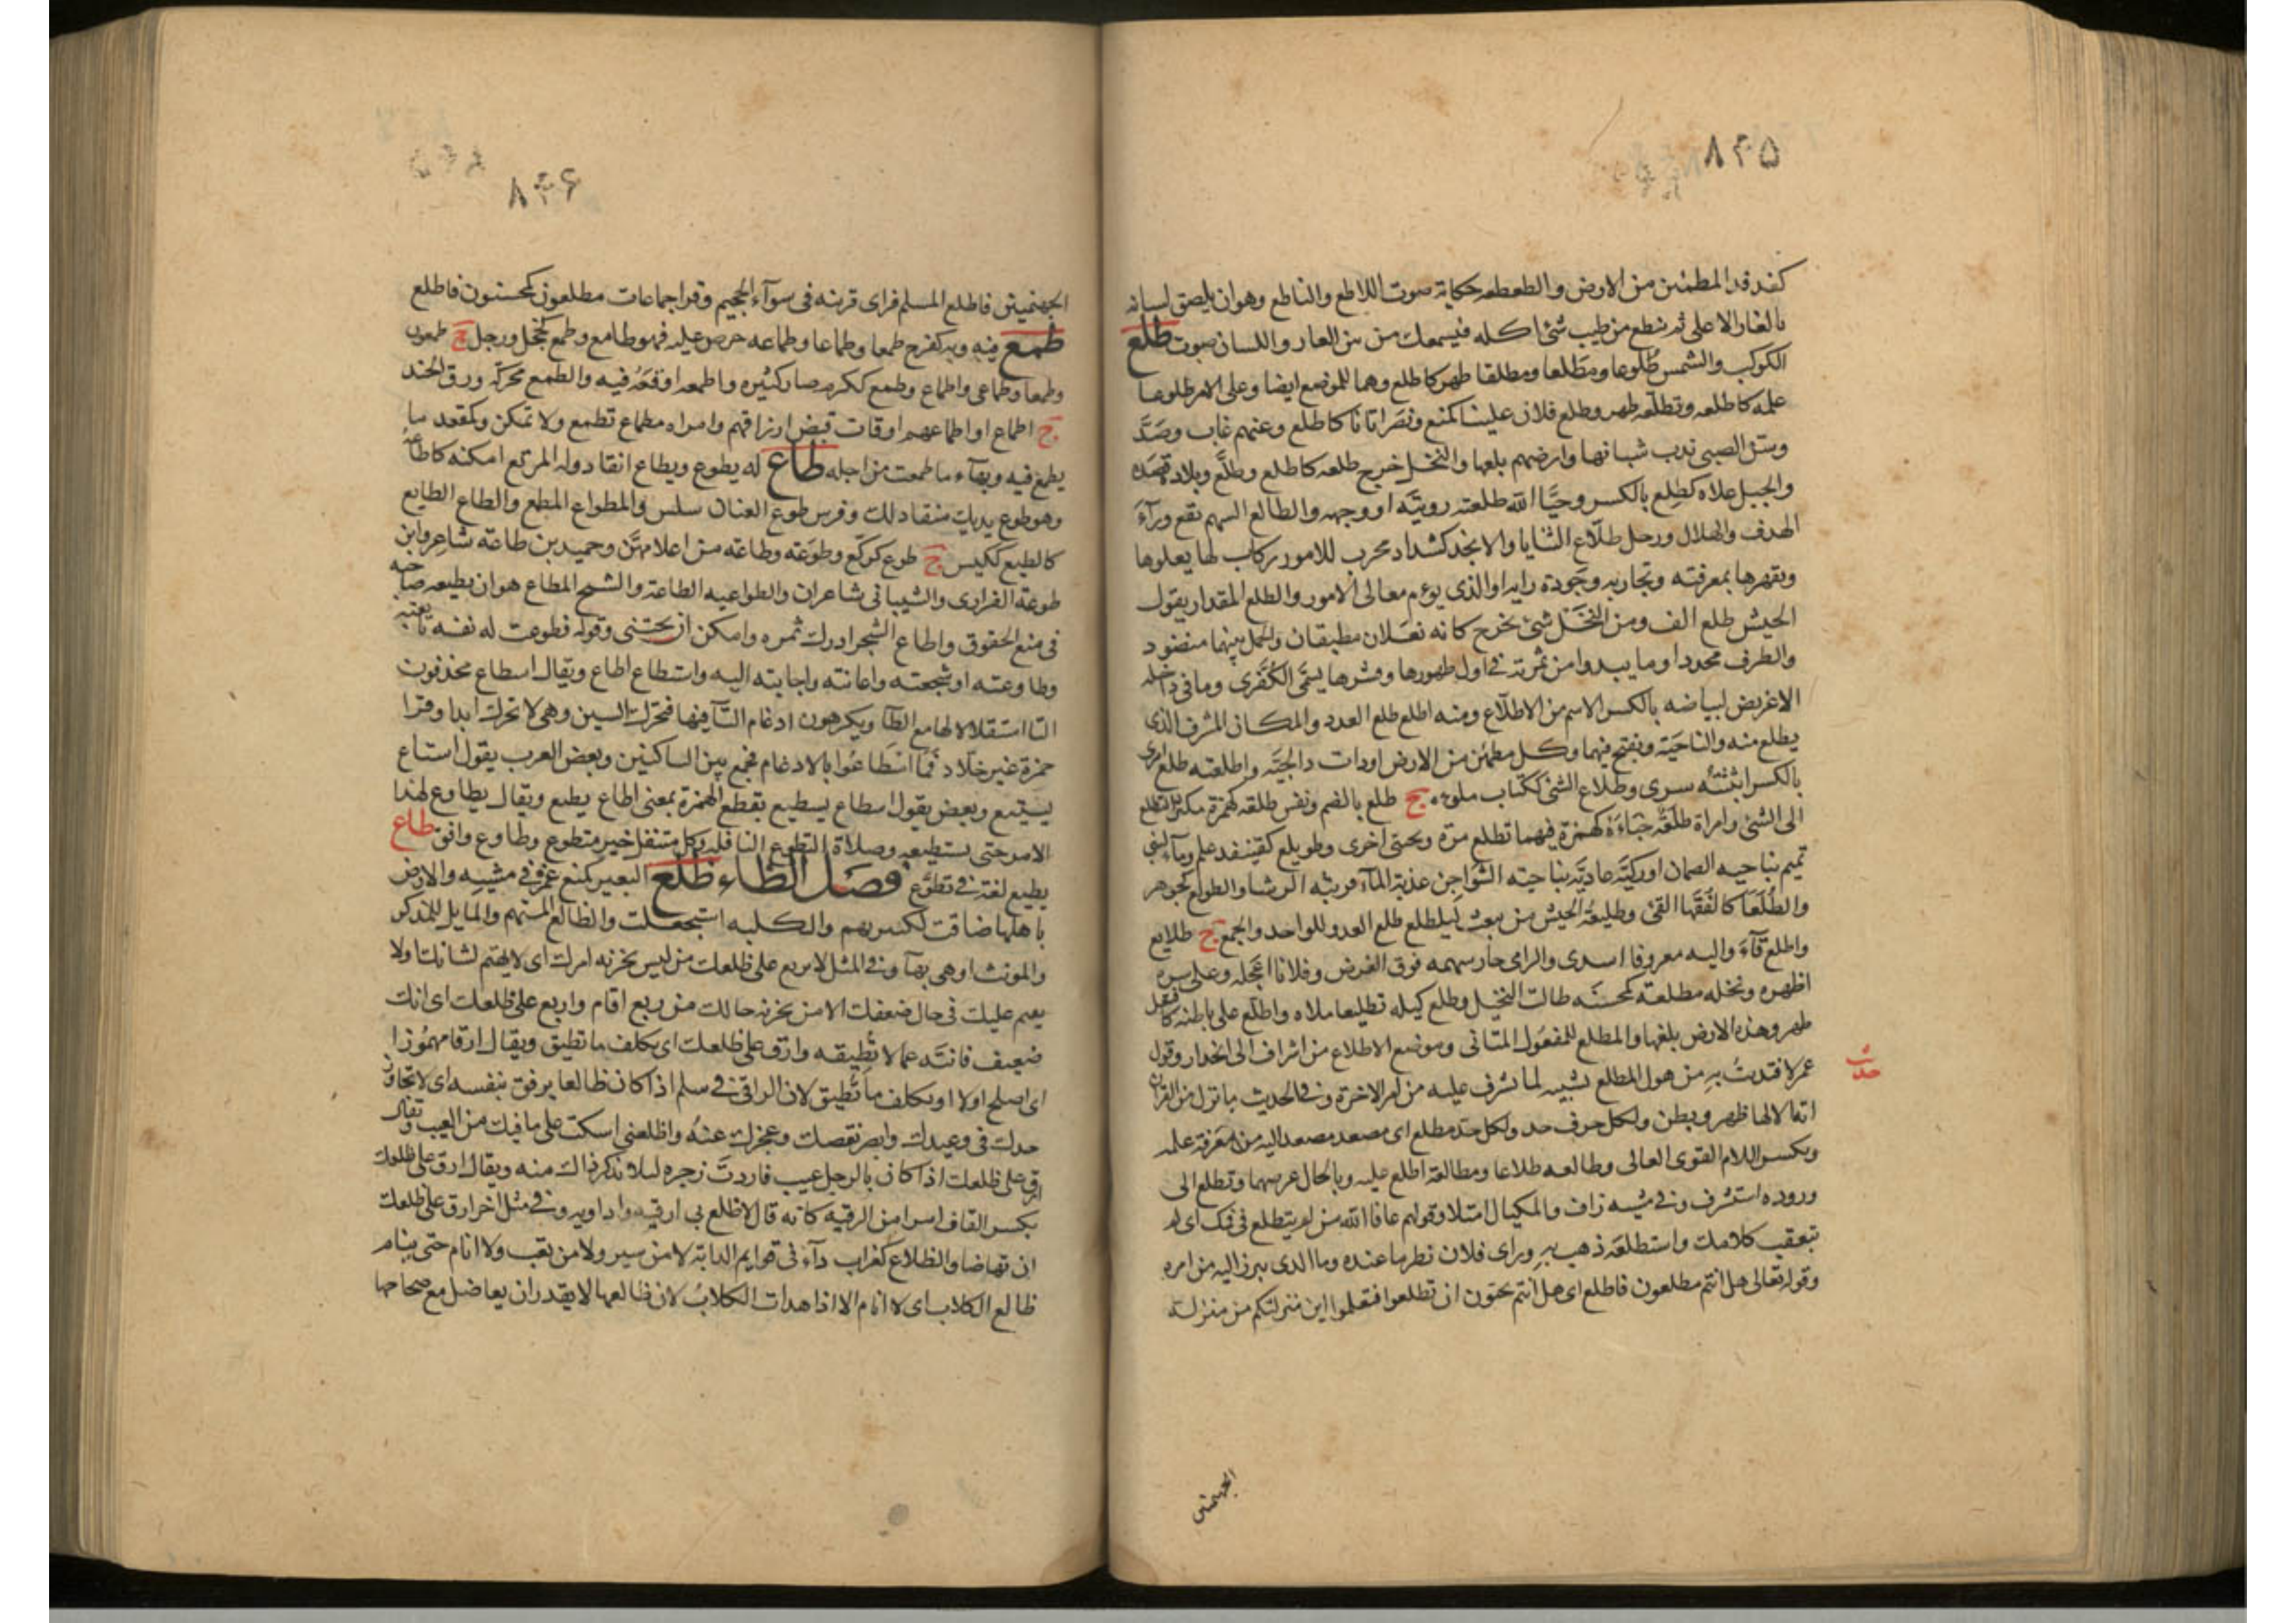 ۸۳۵
كفدفد المطمئن من الارض والطعطعه حكاية صوت اللاطع والناطع وهو ان يلصق لسانه
بالغار الاعلى ثم ينطع من طيب شئ اكله فيسمعك من بين الغار واللسان صوت طلع
الكوكب والشمس طلوعا ومطلعا ومطلعا ظهر كاطلع وهما للموضع ايضا وعلى الامر طلوعا
علمه كاطلعه وتطلعه ظهر وطلع فلان علينا كمنع ونصر اتانا كاطلع وعنهم غاب وضد
وسن الصبى بدت شباتها وارضهم بلغها والنخل خرج طلعه كاطلع وطلع وبلاده قصده
والجبل علاه كطلع بالكسر وحيا الله طلعته رويته او وجهه والطالع السهم يقع ورآء
الهدف والهلال ورجل طلاع الثنايا والانجد كشداد مجرب للامور ركاب لها يعلوها
ويقهرها بمعرفته وتجاربه وجودة رايه او الذى يوم معالى الامور والطلع المقدار يقول
الجيش طلع الف ومن النخل شئ يخرج كانه نعلان مطبقان والحمل بينهما منضود
والطرف محدد او ما يبدوا من ثمرته فى اول ظهورها وقشرها يسمى الكفرى وما فى داخله
الاغريض لبياضه بالكسر الاسم من الاطلاع ومنه اطلع طلع العدو والمكان المشرف الذى
يطلع منه والناحية ويفتح فيهما وكل مطمئن من الارض او ذات الجبه واطلعته طلع امرى
بالكسر ابثثته سرى وطلاع الشئ ككتاب ملوه ج طلع بالضم ونفس طلعه كهمزة تكثر التطلع
الى الشئ وامراة طلعة خباءة كهمزة فيهما تطلع مرة وتختبى اخرى وطويلع كقنيفد علم وماء لبنى
تميم بناحيه الصمان او ركية عادية بناحية الشواجن عذبة المآء قريبة الرشا والطولع كجوهر
والطلعا كالفقها القئ وطليعة الجيش من يبعث ليطلع طلع العدو للواحد والجمع ج طلايع
واطلع قآء واليه معروفا اسدى والرامى جاز سهمه فوق الغرض وفلانا اعجله وعلى سره
اظهره ونخله مطلعة كمحسنه طالت النخيل وطلع كيله تطليعا ملاه واطلع على باطنه كافتعل
ظهر وهذه الارض بلغها والمطلع للمفعول المتانى وموضع الاطلاع من اشراف الى انحدار وقول
عمر لافتديت به من هول المطلع تشبيه لما يشرف عليه من امر الاخرة وفى الحديث ما نزل من القران
حدیث
اية الا لها ظهر وبطن ولكل حرف حد ولكل حد مطلع اى مصعد يصعد اليه من معرفة علمه
وبكسر اللام القوى العالى وطالعه طلاعا ومطالعة اطلع عليه وبالحال عرضها وتطلع الى
وروده استشرف وفى مشيه زاف والمكيال امتلا وقولهم عافا الله من لم يتطلع فى فمك اى لم
يتعقب كلامك واستطلعه ذهب به وراى فلان نظر ما عنده وما الذى يبرز اليه من امره
وقوله تعالى هل انتم مطلعون فاطلع اى هل انتم تحبون ان تطلعوا فتعلموا اين منزلتكم من منزلة
الجهنميين
۸۳۶
الجهنميين فاطلع المسلم فراى قرينه فى سوآء الجحيم وقرا جماعات مطلعون كمحسنون فاطلع
طمع فيه وبه كفرح طمعا وطماعا وطماعه حرص عليه فهو طامع وطمع كخجل ورجل ج طمعون
وطمعا وطماعى واطماع وطمع ككرم صار كثيره واطمعه اوقعه فيه والطمع محركة ورزق الجند
ج اطماع او اطماعهم اوقات قبض ارزاقهم وامراه مطماع تطمع ولا تمكن وكمقعد ما
يطمع فيه وبهآء ما طمعت من اجله طاع له يطوع ويطاع انقاد وله المرتع امكنه كاطاعه
وهو طوع يديك منقاد لك وفرس طوع العنان سلس والمطواع المطيع والطاع الطايع
كالطيع ككيس ج طوع كركع وطوعه وطاعه من اعلامهن وحميد بن طاعة شاعر وابن
طوعة الفزارى والشيبانى شاعران والطواعيه الطاعة والشح المطاع هو ان يطيعه صاحبه
فى منع الحقوق واطاع الشجر ادرك ثمره وامكن ان يجتنى وقوله فطوعت له نفسه تابعته
وطاوعته او شجعته واعانته واجابته اليه واستطاع اطاع ويقال اسطاع يحذفون
التا استثقالا لها مع الطآ ويكرهون ادغام التآ فيها فتحرك السين وهى لا تحرك ابدا وقرا
حمزة غير خلاد فما اسطاعوا بالادغام فجمع بين الساكنين وبعض العرب يقول استاع
يستيع وبعض يقول اسطاع يسطيع بقطع الهمزة بمعنى اطاع يطيع ويقال يطاوع لهذا
الامر حتى يستطيعه وصلاة التطوع النافله وكل متنفل خير متطوع وطاوع وافق طاع
يطيع لغة فى تطوع فصل الظاء ظلع البعير كمنع غمز فى مشيه والارض
باهلها ضاقت لكثرتهم والكلبه استجعلت والظالع المتهم والمايل للمذكر
والمونث او هى بهآ وفى المثل لا يربع على ظلعك من ليس يحزنه امرك اى لا يهتم لشانك ولا
يقيم عليك فى حال ضعفك الا من يحزنه حالك من ربع اقام واربع على ظلعك اى انك
ضعيف فانته عما لا تطيقه وارق على ظلعك اى تكلف ما تطيق ويقال ارقا مهموزا
اى اصلح اولا او تكلف ما تطيق لان الراقى فى سلم اذا كان ظالعا يرفق بنفسه اى لا تجاوز
حدك فى وعيدك وابصر نقصك وعجزك عنه واظلعنى اسكت على ما فيك من العيب وتقال
ارق على ظلعك اذا كان بالرجل عيب فاردت زجره ليلا تذكر ذاك منه ويقال ارق على ظلعك
بكسر القاف امر من الرقية كانه قال لا ظلع بى ارقيه واداويه وفى مثل اخر ارق على ظلعك
ان تهاضا والظلاع كغراب دآء فى قوايم الدابة لا من سير ولا من تعب ولا انام حتى ينام
ظالع الكلاب اى لا انام الا اذا هدات الكلاب لان ظالعها لا يقدر ان يعاضل مع صحاحها